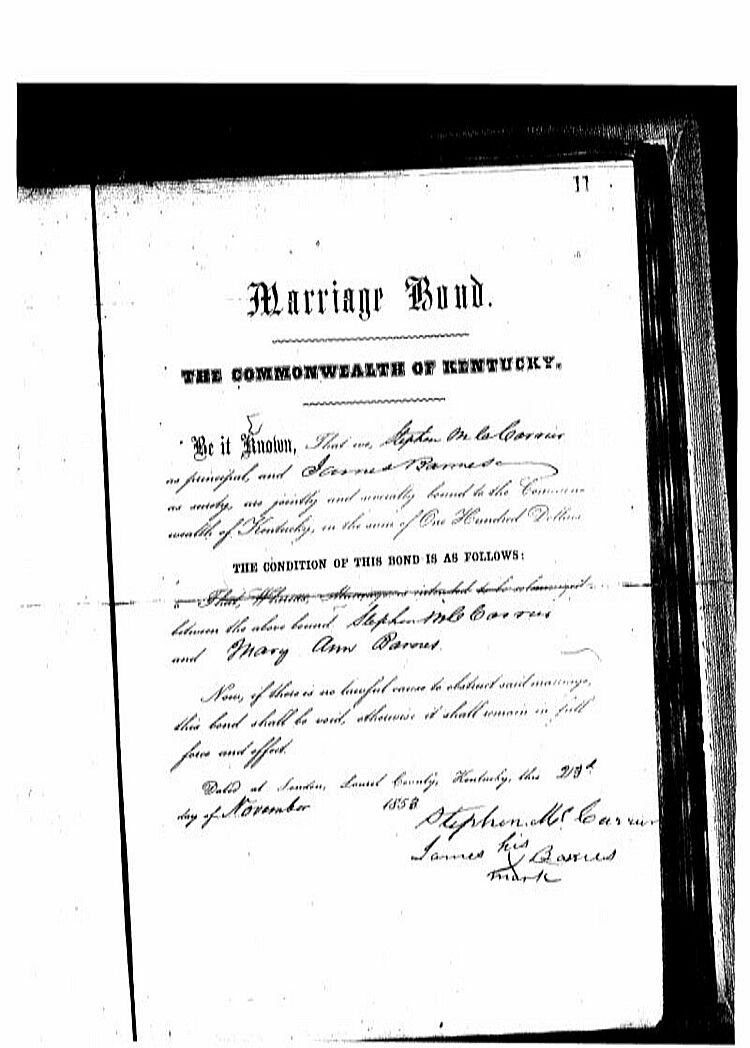 11
Marriage Bond.
THE COMMONWEALTH OF KENTUCKY.
Be it Known, That we, Stephen McCarrier
as principal, and James Barnes
as surety, are jointly and severally bound to the Common-
wealth of Kentucky, in the sum of One Hundred Dollars
THE CONDITION OF THIS BOND IS AS FOLLOWS:
That, Whereas, Marriage is intended to be solemnized
between the above bound Stephen McCarrier
and Mary Ann Barnes.
Now, if there is no lawful cause to obstruct said marriage,
this bond shall be void, otherwise it shall remain in full
force and effect.
Dated at London, Laurel County, Kentucky, this
day of November 1853
Stephen Mc Carrier
James his Barnes
mark